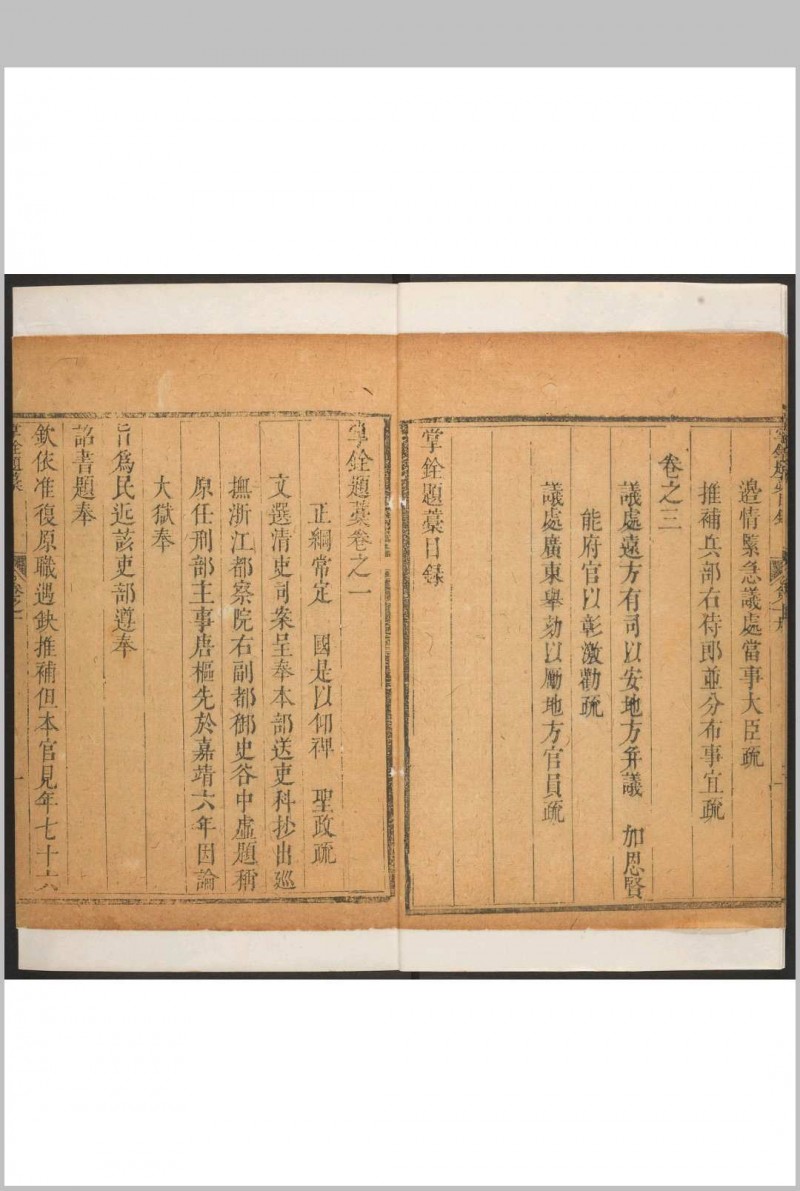 邉情緊急議處當事大臣疏
推補兵部右侍郎並分布事宜疏
卷之三
議處遠方有司以安地方并議　加恩賢
能府官以彰激勸疏
議處廣東舉劾以勵地方官員疏
掌銓題藁目錄
掌銓題藁卷之一
正綱常定　國是以仰禆　聖政疏
文選清吏司案呈奉本部送吏科抄出巡
撫浙江都察院右副都御史谷中虛題稱
原任刑部主事唐樞先於嘉靖六年因論
大獄奉
旨爲民近該吏部遵奉
詔書題奉
欽依准復原職遇缺推補但本官見年七十六